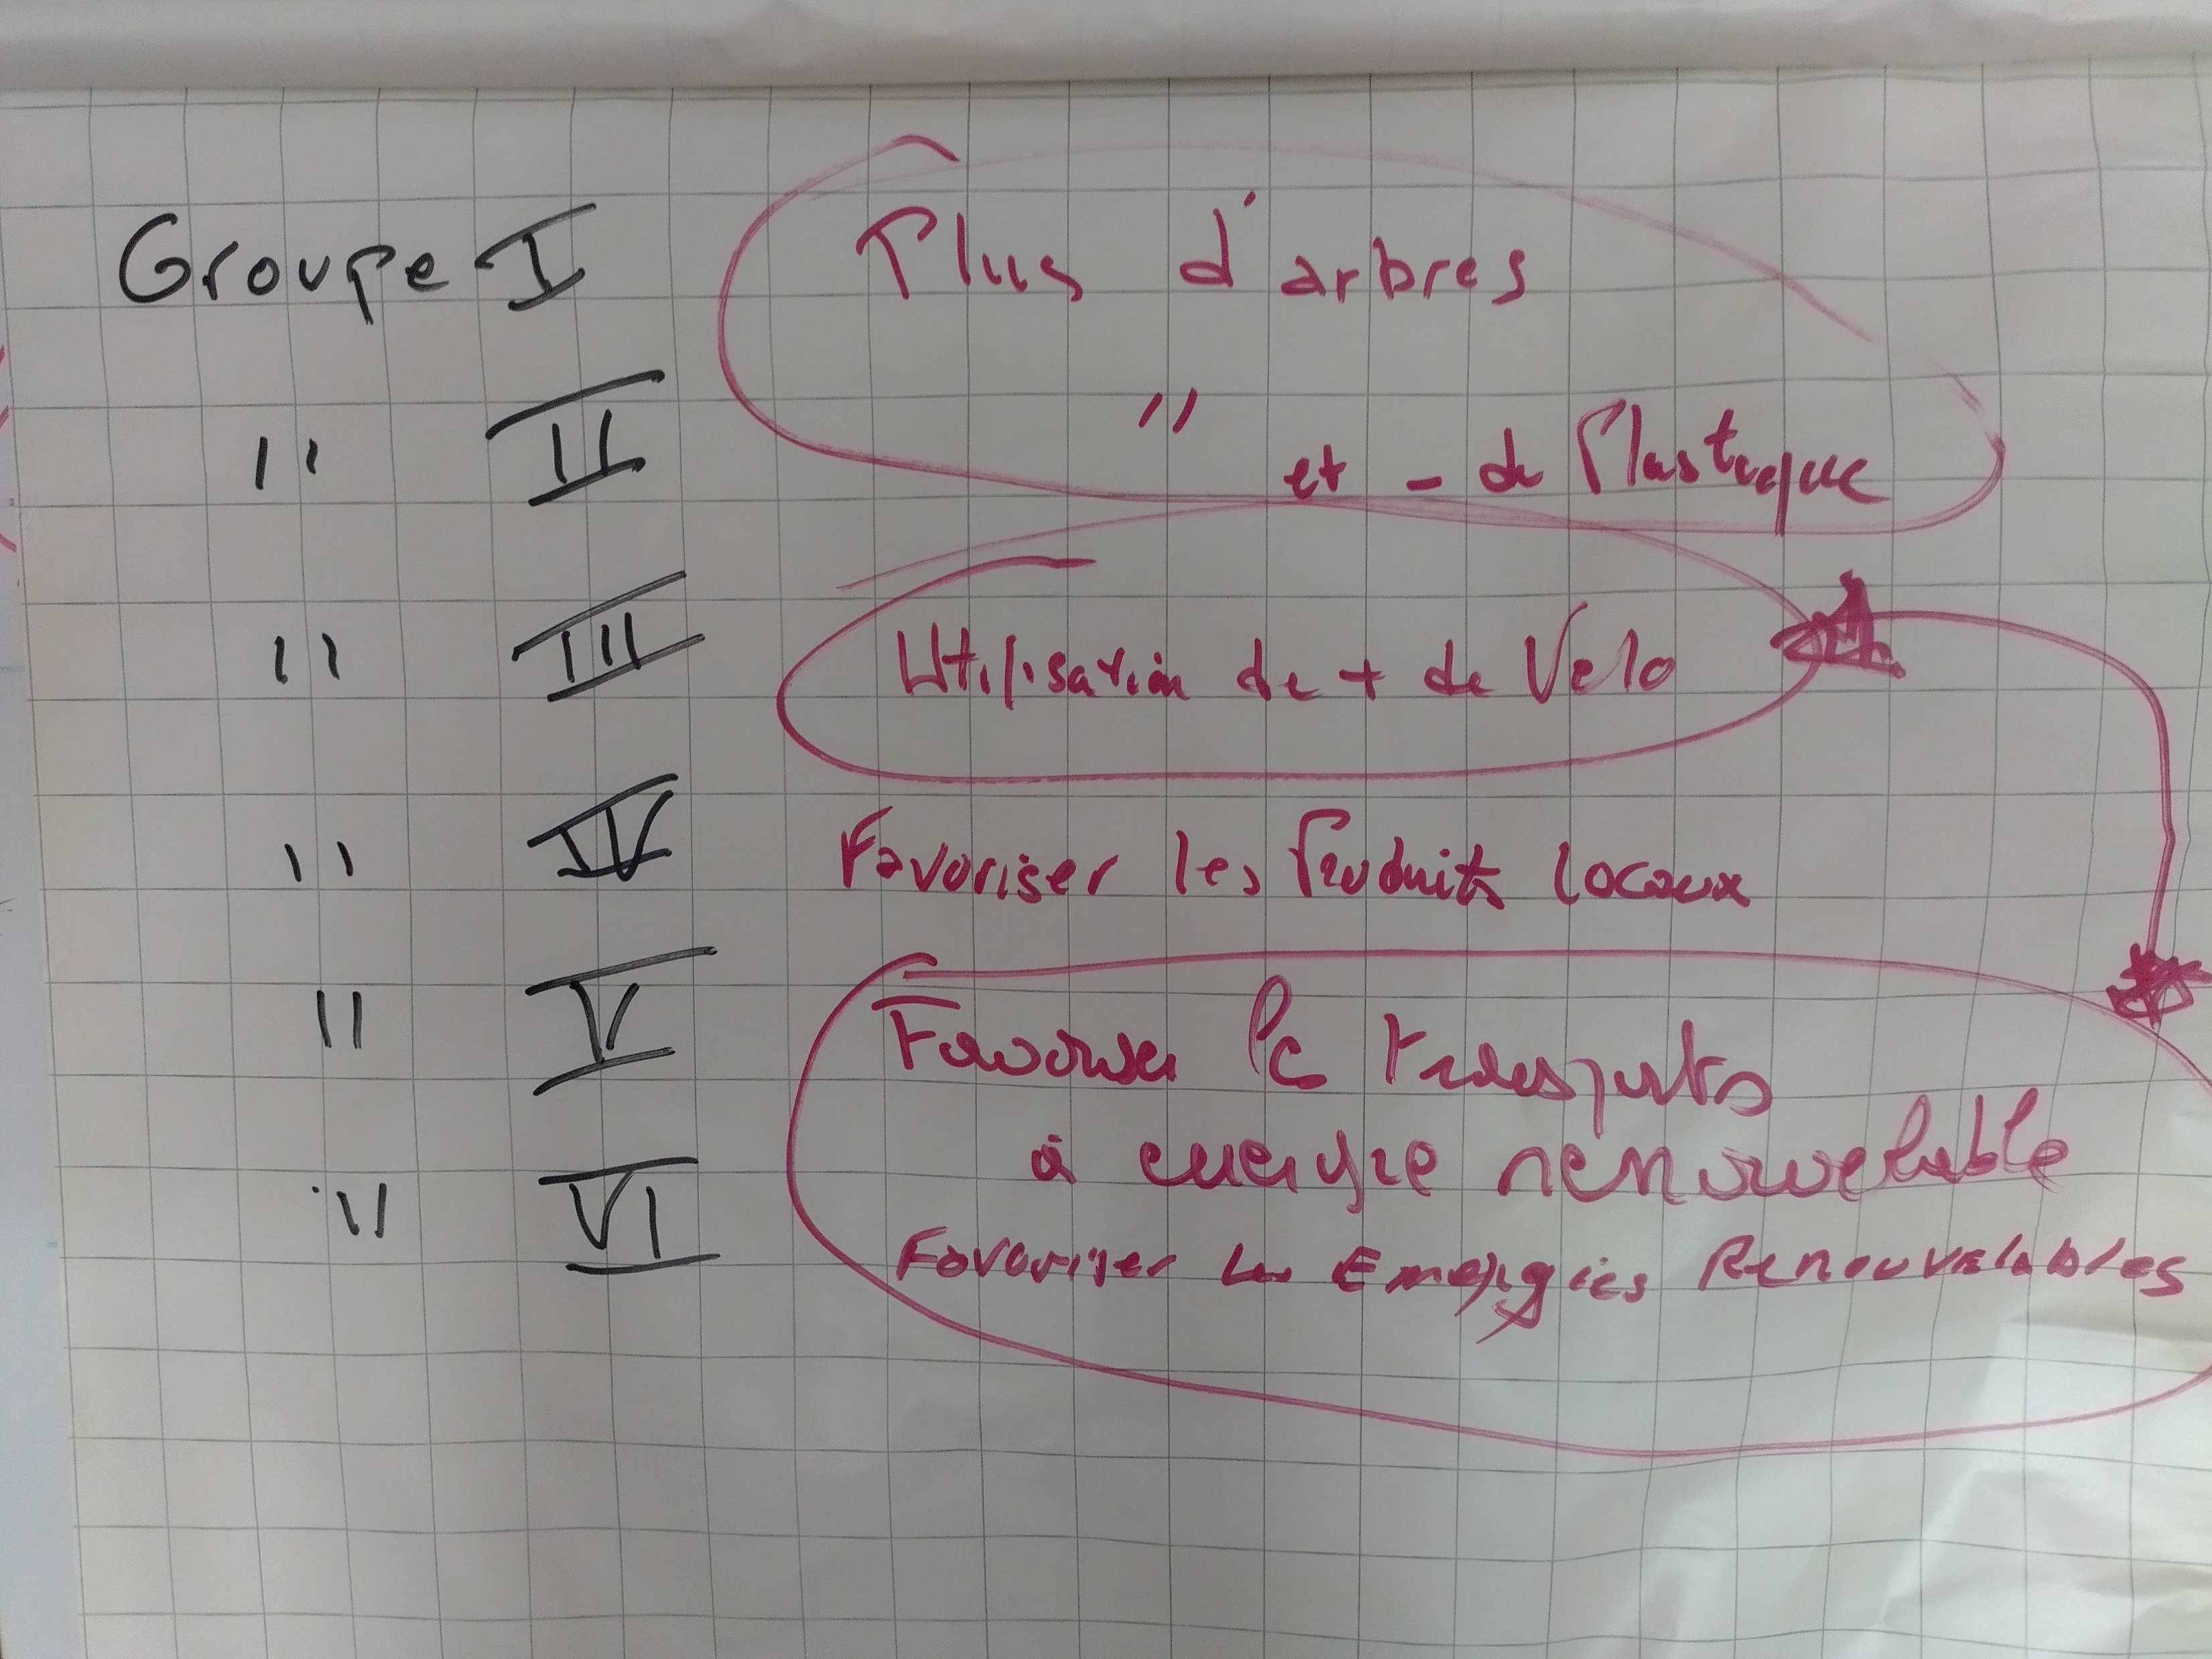 Groupe I Plus d'arbres
" II " et - de Plastique
" III Utilisation de + de Velo
" IV Favoriser les Produits locaux
" V Favoriser le transports
à energie renouvelable
" VI Favoriser les Energies Renouvelables